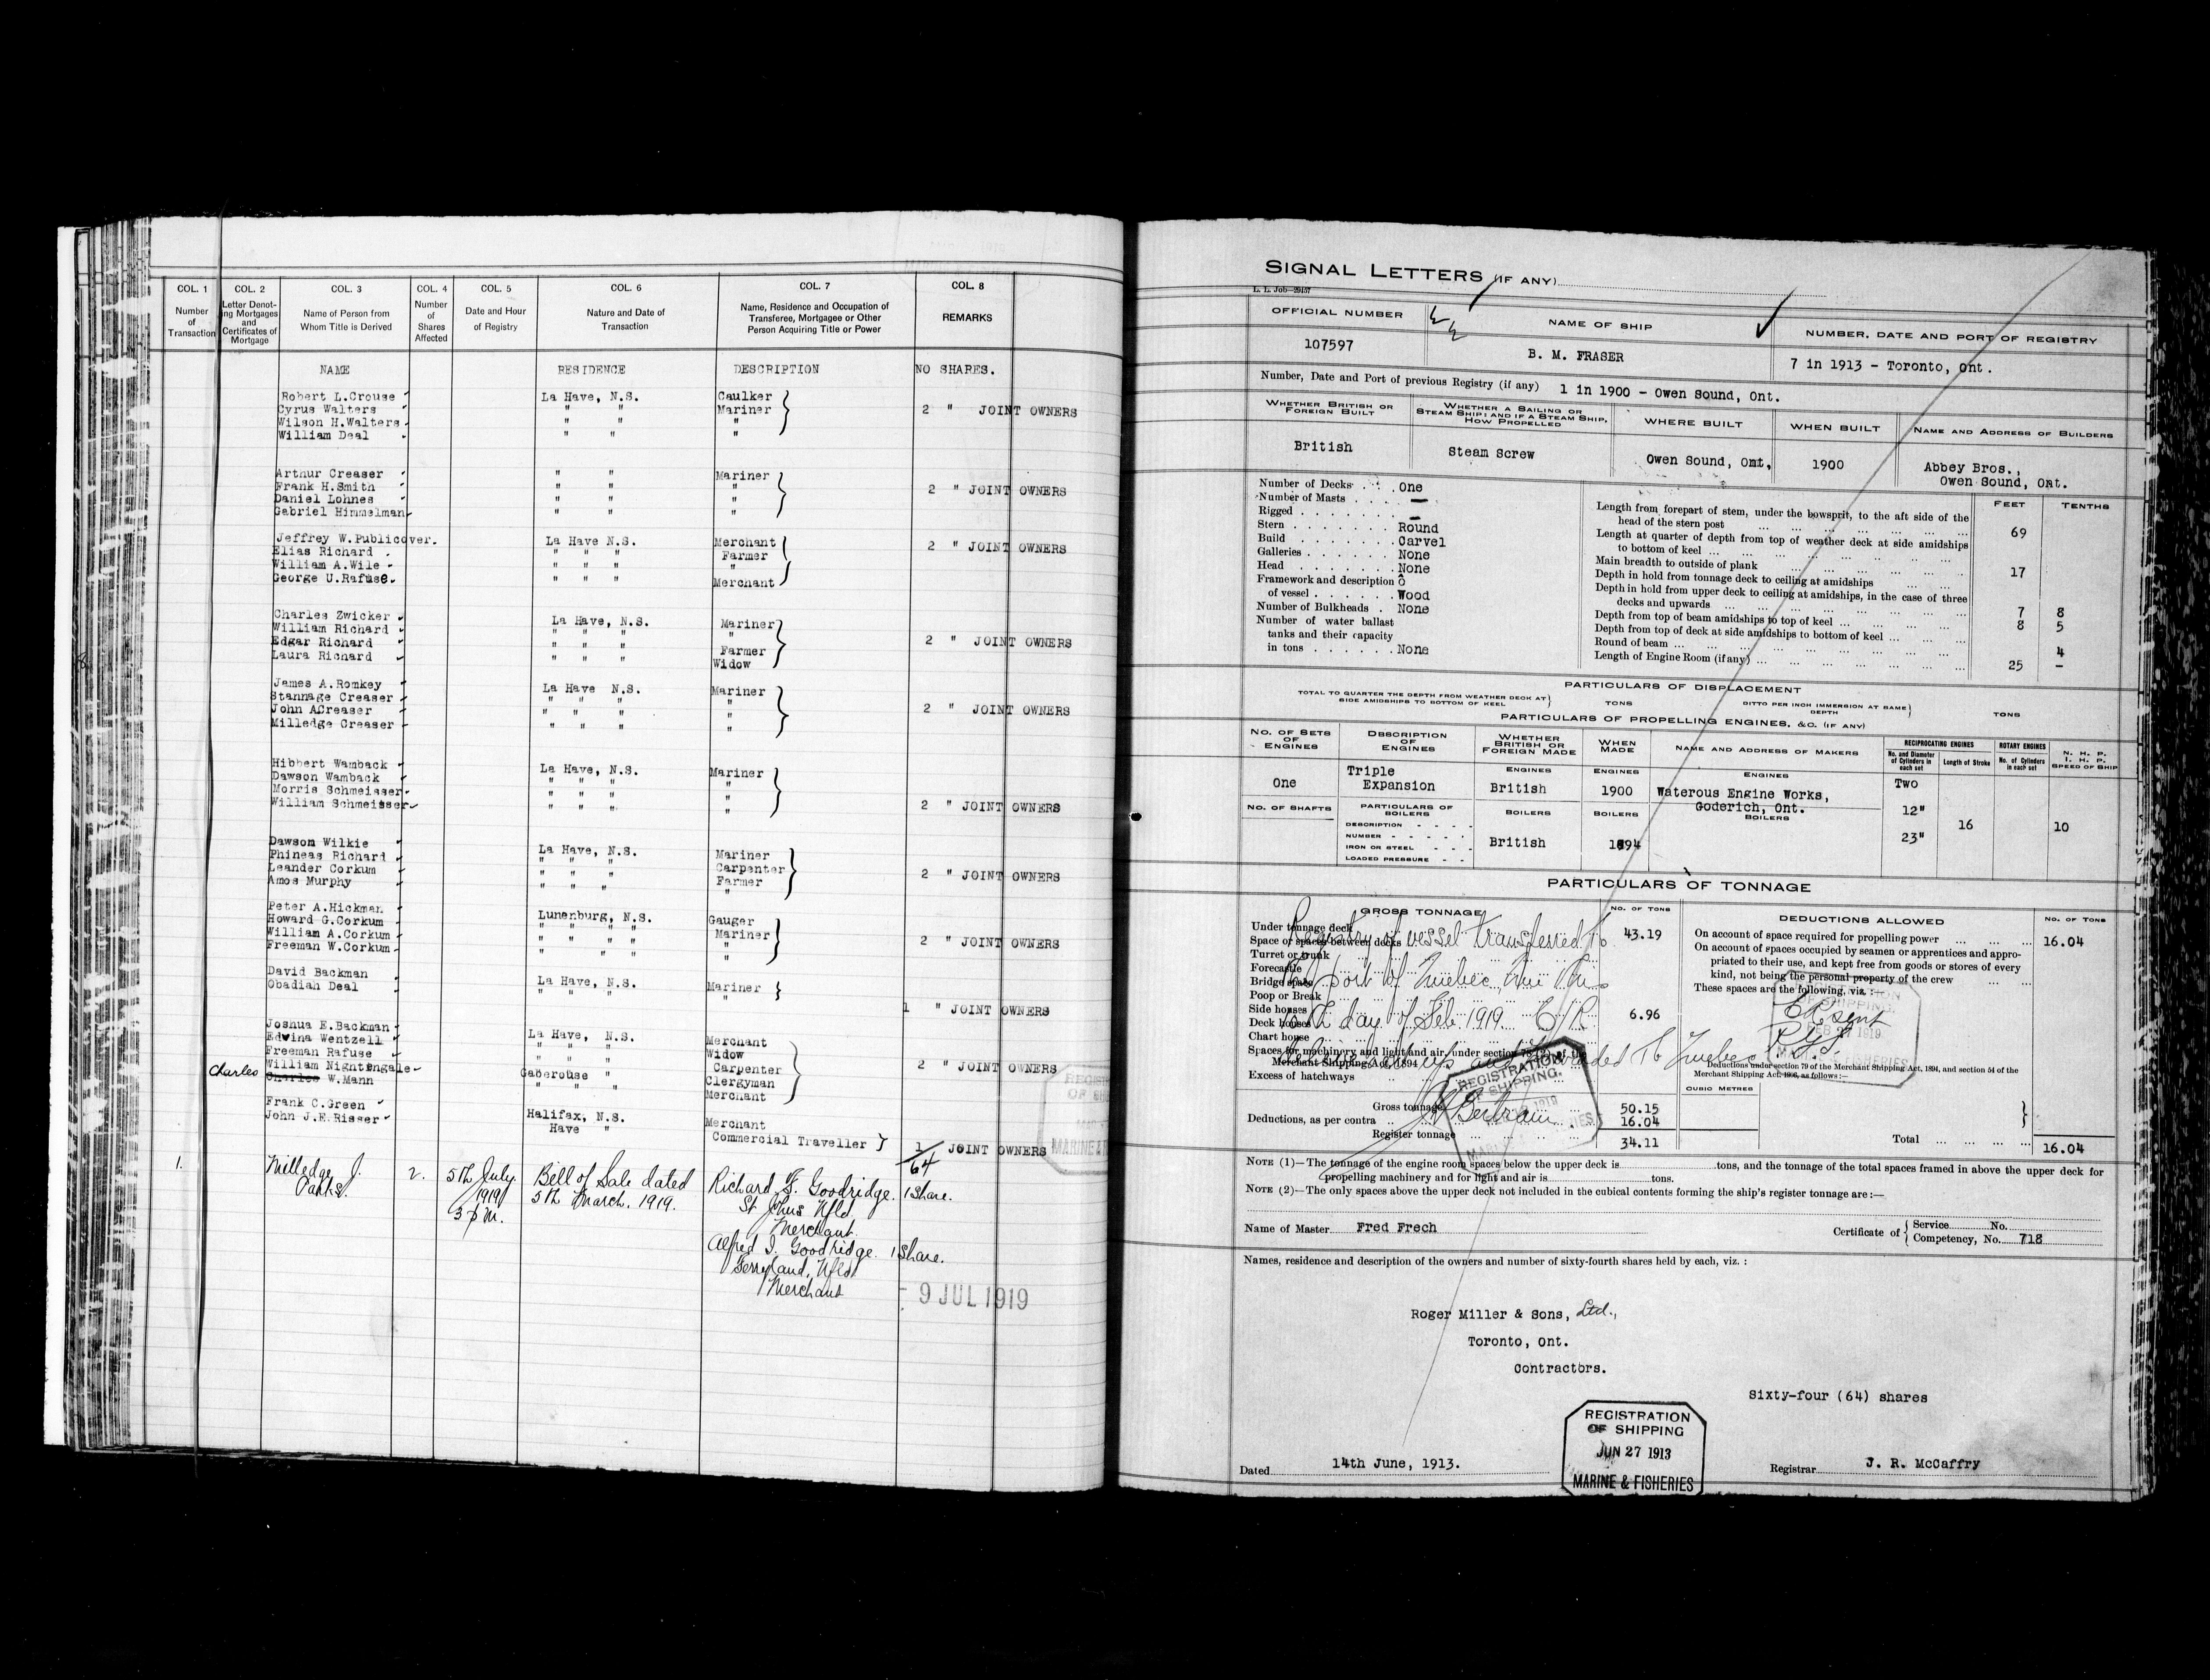 COL. 1 COL. 2 COL. 3 COL. 4 COL. 5 COL. 6 COL. 7 COL. 8
Number of Transaction
Letter Denoting Mortgages and Certificates of Mortgage
Name of Person from Whom Title is Derived
Number of Shares Affected
Date and Hour of Registry
Nature and Date of Transaction
Name, Residence and Occupation of Transferee, Mortgagee or Other Person Acquiring Title or Power
REMARKS
NAME RESIDENCE DESCRIPTION NO SHARES.
Robert L.Crouse La Have, N.S. Caulker
Cyrus Walters " " Mariner 2 " JOINT OWNERS
Wilson H.Walters " " "
William Deal " " "
Arthur Creaser " " Mariner
Frank H.Smith " " " 2 " JOINT OWNERS
Daniel Lohnes " " "
Gabriel Himmelman " " "
Jeffrey W.Publicover. La Have N.S. Merchant 2 " JOINT OWNERS
Elias Richard " " " Farmer
William A.Wile " " " "
George U.Rafuse " " " Merchant
Charles Zwicker La Have, N.S. Mariner
William Richard " " " "
Edgar Richard " " " Farmer 2 " JOINT OWNERS
Laura Richard " " " Widow
James A.Romkey La Have N.S. Mariner
Stannage Creaser " " " "
John ACreaser " " " " 2 " JOINT OWNERS
Milledge Creaser " " " "
Hibbert Wamback La Have, N.S. Mariner
Dawson Wamback " " " "
Morris Schmeisser " " " "
William Schmeisser " " " " 2 " JOINT OWNERS
Dawson Wilkie La Have, N.S. Mariner
Phineas Richard " " " Carpenter
Leander Corkum " " " Farmer 2 " JOINT OWNERS
Amos Murphy " " " "
Peter A.Hickman Lunenburg, N.S. Gauger
Howard G.Corkum " " " " Mariner
William A.Corkum " " " " " 2 " JOINT OWNERS
Freeman W.Corkum " " " "
David Backman La Have, N.S. Mariner
Obadiah Deal " " " "
1 " JOINT OWNERS
Joshua E.Backman La Have, N.S. Merchant
Edwina Wentzell " " " Widow
Freeman Rafuse " " " Carpenter
William Nightingale Gaberouse " Clergyman 2 " JOINT OWNERS
Charles Charles W.Mann " " " Merchant
Frank C.Green Halifax, N.S. Merchant
John J.E.Risser Have " Commercial Traveller 1/64 JOINT OWNERS
1. Milledge J. Parks. 2. 5th July 1919 3 p m. Bill of Sale dated 5th March. 1919. Richard F. Goodridge. 1 Share.
St Johns Nfld
Merchant.
Alfred J. Goodridge. 1 Share.
Ferryland, Nfld
Merchant
- 9 JUL 1919
SIGNAL LETTERS (IF ANY)
L. L. Job—29457
OFFICIAL NUMBER NAME OF SHIP NUMBER, DATE AND PORT OF REGISTRY
107597 B. M. FRASER 7 in 1913 - Toronto, Ont.
Number, Date and Port of previous Registry (if any) 1 in 1900 - Owen Sound, Ont.
WHETHER BRITISH OR FOREIGN BUILT
WHETHER A SAILING OR STEAM SHIP: AND IF A STEAM SHIP, HOW PROPELLED
WHERE BUILT WHEN BUILT NAME AND ADDRESS OF BUILDERS
British Steam Screw Owen Sound, Ont. 1900 Abbey Bros.,
Owen Sound, Ont.
Number of Decks One
Number of Masts —
Rigged —
Stern Round
Build Carvel
Galleries None
Head None
Framework and description of vessel Wood
Number of Bulkheads None
Number of water ballast tanks and their capacity in tons None
FEET TENTHS
Length from forepart of stem, under the bowsprit, to the aft side of the head of the stern post 69
Length at quarter of depth from top of weather deck at side amidships to bottom of keel
Main breadth to outside of plank 17
Depth in hold from tonnage deck to ceiling at amidships
Depth in hold from upper deck to ceiling at amidships, in the case of three decks and upwards 7 8
Depth from top of beam amidships to top of keel 8 5
Depth from top of deck at side amidships to bottom of keel
Round of beam 4
Length of Engine Room (if any) 25 —
PARTICULARS OF DISPLACEMENT
TOTAL TO QUARTER THE DEPTH FROM WEATHER DECK AT SIDE AMIDSHIPS TO BOTTOM OF KEEL TONS DITTO PER INCH IMMERSION AT SAME DEPTH TONS
PARTICULARS OF PROPELLING ENGINES, &C. (IF ANY)
NO. OF SETS OF ENGINES
DESCRIPTION OF ENGINES
WHETHER BRITISH OR FOREIGN MADE
WHEN MADE
NAME AND ADDRESS OF MAKERS
RECIPROCATING ENGINES
No. and Diameter of Cylinders in each set Length of Stroke
ROTARY ENGINES
No. of Cylinders in each set
N. H. P.
I. H. P.
SPEED OF SHIP
ENGINES ENGINES ENGINES
One Triple Expansion British 1900 Waterous Engine Works,
Goderich, Ont.
Two
12"
23"
16
10
NO. OF SHAFTS PARTICULARS OF BOILERS BOILERS BOILERS BOILERS
DESCRIPTION
NUMBER
IRON OR STEEL
LOADED PRESSURE
British 1894
PARTICULARS OF TONNAGE
GROSS TONNAGE NO. OF TONS DEDUCTIONS ALLOWED NO. OF TONS
Under tonnage deck 43.19
Space or spaces between decks
Turret or trunk
Forecastle
Bridge space
Poop or Break
Side houses
Deck houses 6.96
Chart house
Spaces for machinery and light and air, under section 78 (2) of the Merchant Shipping Act, 1894
Excess of hatchways
Gross tonnage 50.15
Deductions, as per contra 16.04
Register tonnage 34.11
Registry of vessel transferred to
the port of Quebec this
day of Feb. 1919.
forwarded to Quebec
Bertram
REGISTRATION OF SHIPPING.
On account of space required for propelling power 16.04
On account of spaces occupied by seamen or apprentices and appropriated to their use, and kept free from goods or stores of every kind, not being the personal property of the crew
These spaces are the following, viz. :—
Deductions under section 79 of the Merchant Shipping Act, 1894, and section 54 of the Merchant Shipping Act, 1906, as follows:—
CUBIC METRES
Total 16.04
NOTE (1)—The tonnage of the engine room spaces below the upper deck is tons, and the tonnage of the total spaces framed in above the upper deck for
propelling machinery and for light and air is tons.
NOTE (2)—The only spaces above the upper deck not included in the cubical contents forming the ship's register tonnage are:—
Name of Master Fred Frech Certificate of Service No.
Competency, No. 718
Names, residence and description of the owners and number of sixty-fourth shares held by each, viz. :
Roger Miller & Sons, Ltd.,
Toronto, Ont.
Contractors.
Sixty-four (64) shares
REGISTRATION
OF SHIPPING
JUN 27 1913
MARINE & FISHERIES
Dated 14th June, 1913. Registrar J. R. McCaffry